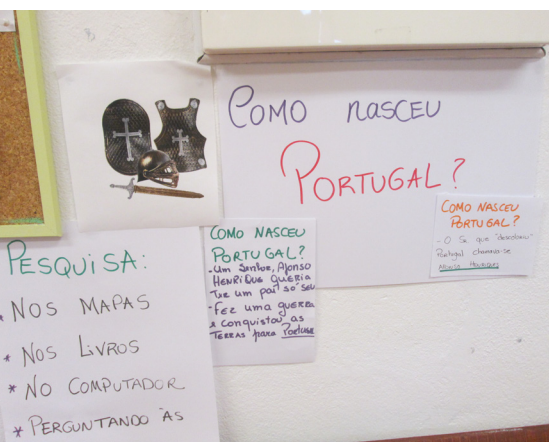 COMO NASCEU
PORTUGAL?
COMO NASCEU
PORTUGAL?
- O Sr que "descobriu"
Portugal chamava-se
Afonso Henriques
COMO NASCEU
PORTUGAL?
- Um Senhor, Afonso
HENRIQUE QUERIA
TER um país só seu
- FEZ uma guerra
e conquistou as
TERRAS para Portugal
PESQUISA:
* NOS MAPAS
* NOS LIVROS
* NO COMPUTADOR
* PERGUNTANDO ÀS